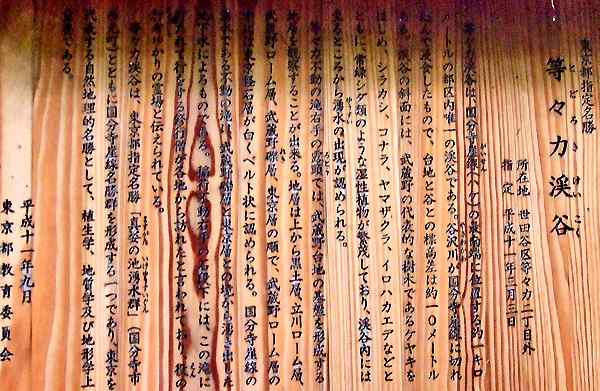 東京都指定名勝
等々力渓谷
とどろきけいこく
所在地 世田谷区等々力二丁目外
指定 平成十一年三月三日
等々力渓谷は、国分寺崖線(ハケ)の最南端に位置する約一キロ
メートルの都区内唯一の渓谷である。谷沢川が国分寺崖線に切れ
込んで浸食したもので、台地と谷との標高差は約一〇メートル
ある。渓谷の斜面には、武蔵野の代表的な樹木であるケヤキを
はじめ、シラカシ、コナラ、ヤマザクラ、イロハカエデなどと
ともに、常緑シダ類のような湿性植物が繁茂しており、渓谷内には
至るところから湧水の出現が認められる。
等々力不動の滝右手の露頭では、武蔵野台地の基盤を形成する
地層を観察することが出来る。地層は上から表土層、立川ローム層、
武蔵野ローム層、武蔵野礫層、東京層の順で、武蔵野ローム層の
東京軽石層が白くベルト状に認められる。国分寺崖線の
不動の滝は、武蔵野礫層と東京層との境から湧き出した
地下水によるものである。稲荷大明神右手の石段下には、この滝に
打たれて行をする修行僧が各地から訪れたと言われており、役の
ゆかりの霊場と伝えられている。
等々力渓谷は、東京都指定名勝「真姿の池湧水群」(国分寺市
)とともに国分寺崖線名勝群を形成する一つであり、東京を
代表する自然地理的名勝として、植生学、地質学及び地形学上
である。
平成十一年九月
東京都教育委員会